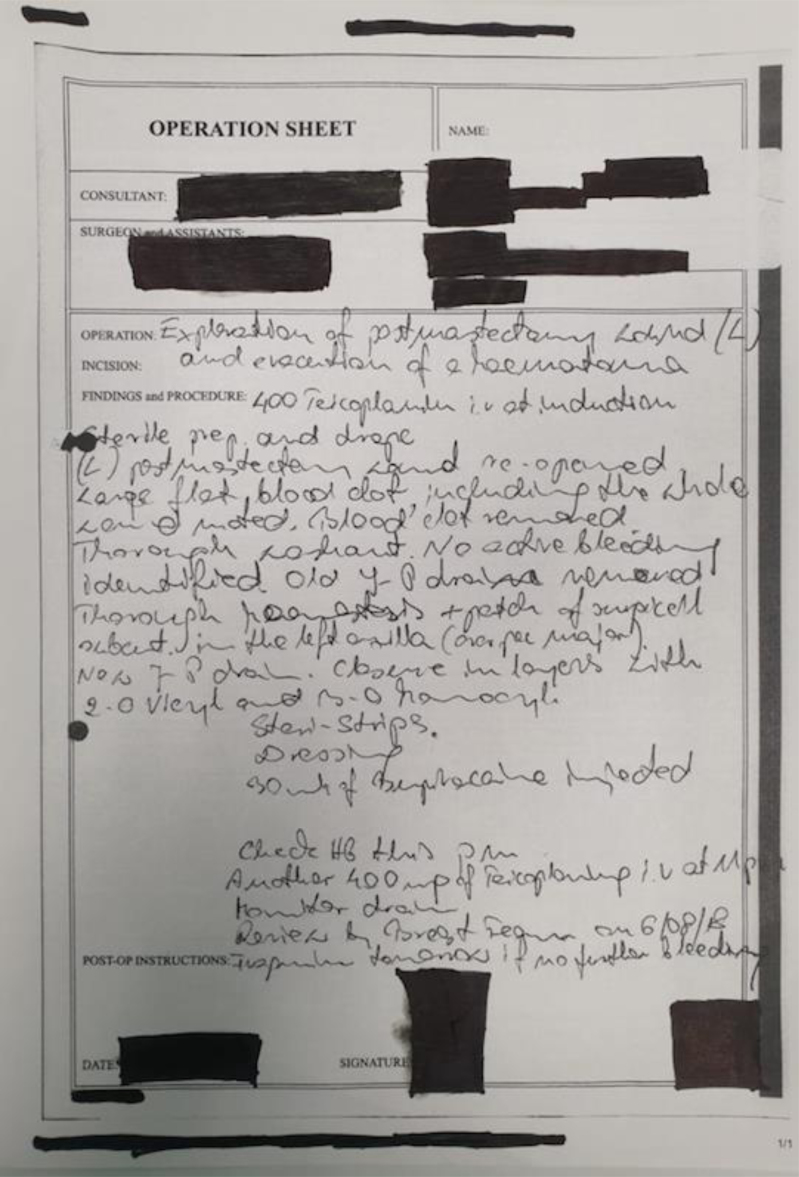 OPERATION SHEET
NAME:
CONSULTANT:
SURGEON and ASSISTANTS:
OPERATION: Exploration of postmastectomy wound (L)
INCISION: and evacuation of a haematoma
FINDINGS and PROCEDURE: 400 Teicoplanin i.v at induction
Sterile prep. and drape
(L) postmastectomy wound re-opened
Large flat blood clot including the whole
wound noted. Blood clot removed
Thorough No active bleeding
identified. Old J-P drain removed
Thorough haemostasis + patch of surgicell
in the left axilla (over pec major).
New J-P drain. Closure in layers with
2-0 Vicryl and 3-0 Monocryl.
Steri-Strips.
Dressing
30 mls of injected
Check HB this pm
Another 400 mg of Teicoplanin i.v at 11pm
Monitor drain
Review by Breast Team on 6/08/
POST-OP INSTRUCTIONS: tomorrow if no further bleeding
DATE:
SIGNATURE
1/1